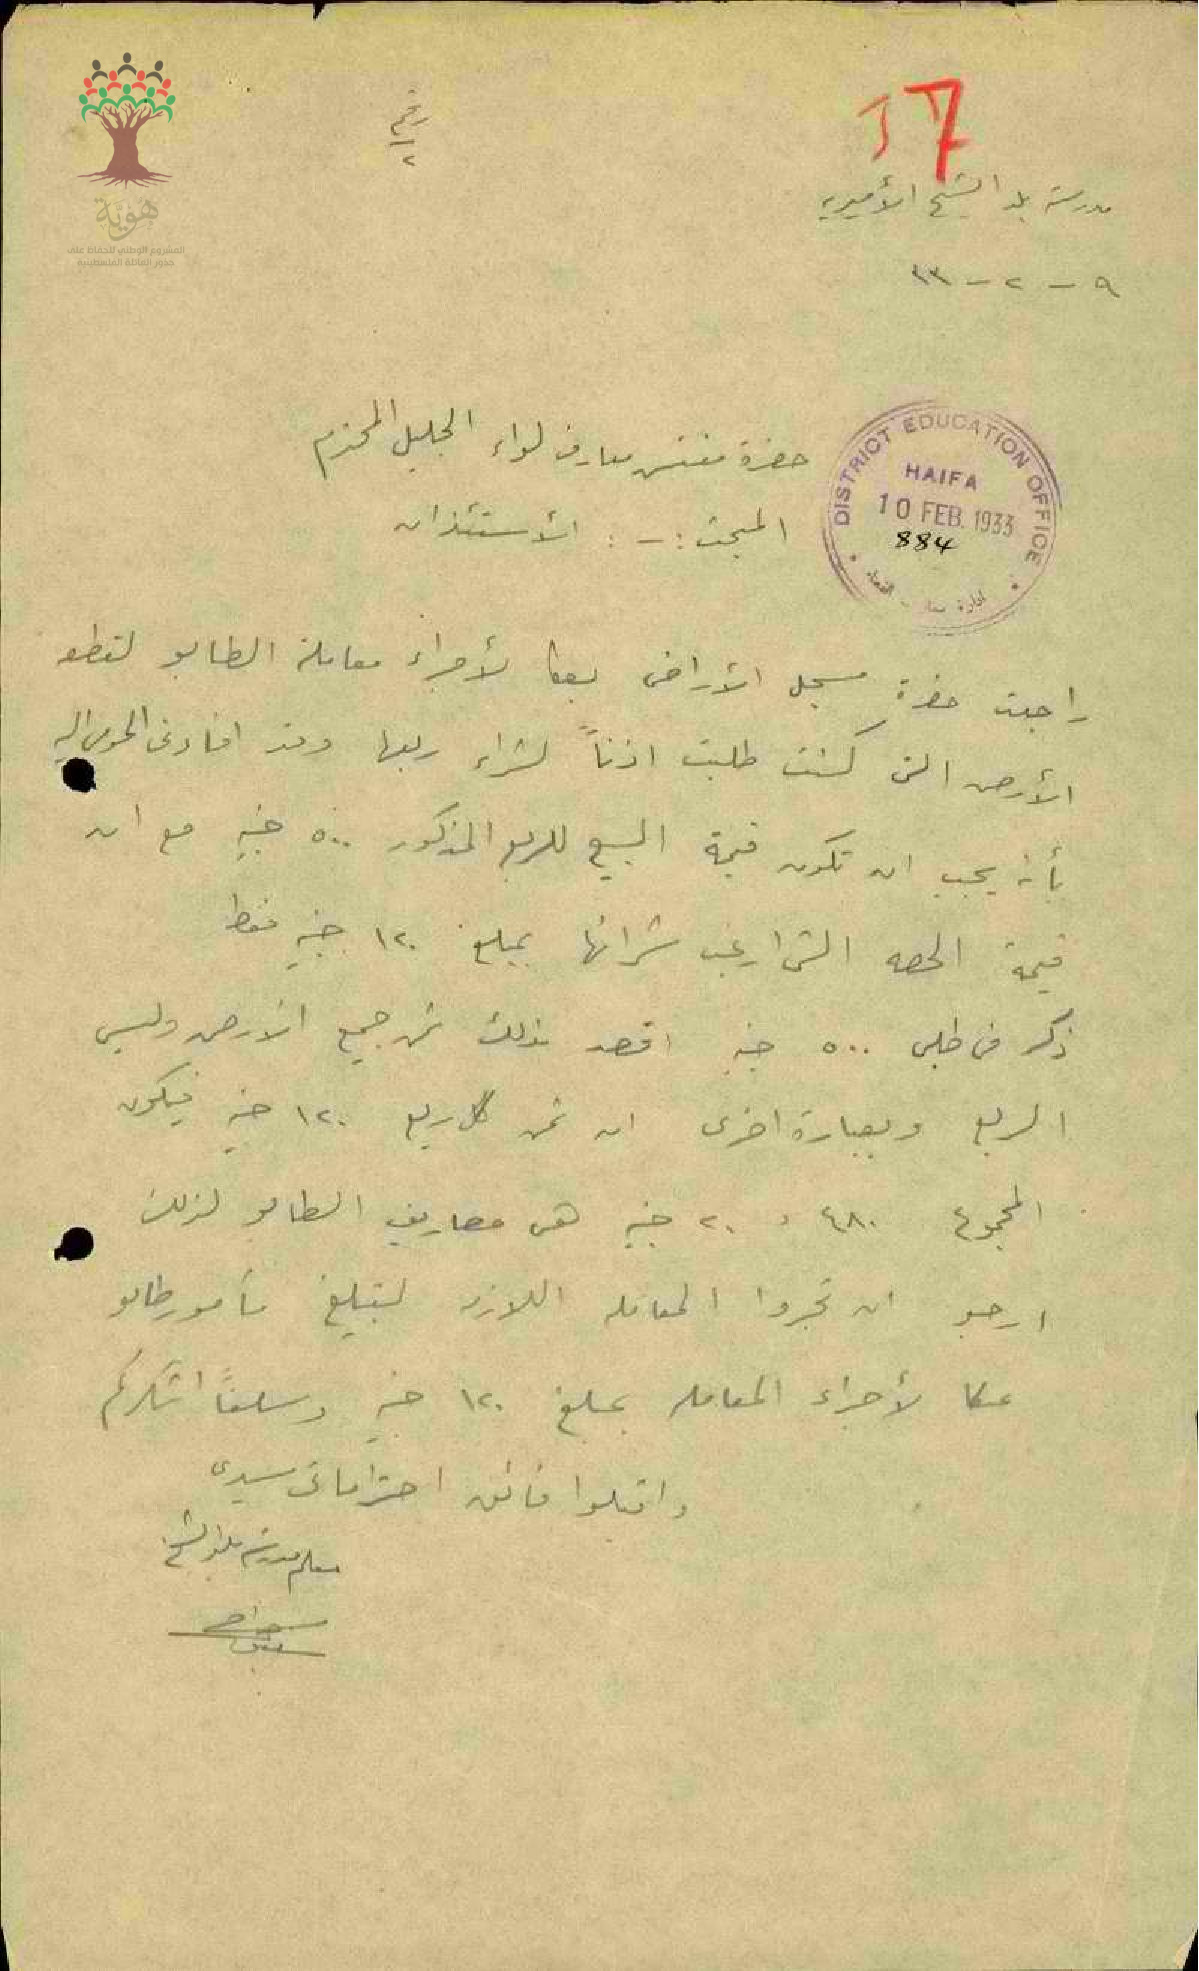 هوية
المشروع الوطني للحفاظ على
جذور العائلة الفلسطينية
رقم
٢
17
مدرسة بلد الشيخ الأميرية
٩ - ٢ - ٣٣
حضرة مفتش معارف لواء الجليل المحترم
المبحث :- : الأستئذان
DISTRICT EDUCATION OFFICE
HAIFA
10 FEB. 1933
884
ادارة معارف
راجعت حضرة مسجل الأراضي بعكا لأجراء معاملة الطابو لقطعة
الأرض التي كنت طلبت اذناً لشراء ربعها وقد افادني المومى اليه
بأنه يجب ان تكون قيمة البيع للربع المذكور ٥٠٠ جنيه مع ان
قيمة الحصه التي ارغب شرائها بمبلغ ١٢٠ جنيه فقط
ذكر في طلبي ٥٠٠ جنيه اقصد بذلك ثمن جميع الأرض وليس
الربع وبعبارة اخرى ان ثمن كل ربع ١٢٠ جنيه فيكون
المجموع ٤٨٠ و ٢٠ جنيه هي مصاريف الطابو لذلك
ارجو ان تجروا المعامله اللازمه لتبليغ مأمور طابو
عكا لأجراء المعامله بمبلغ ١٢٠ جنيه وسلفاً اشكركم
واقبلوا فائق احتراماتي سيدي
معلم مدرسة بلد الشيخ